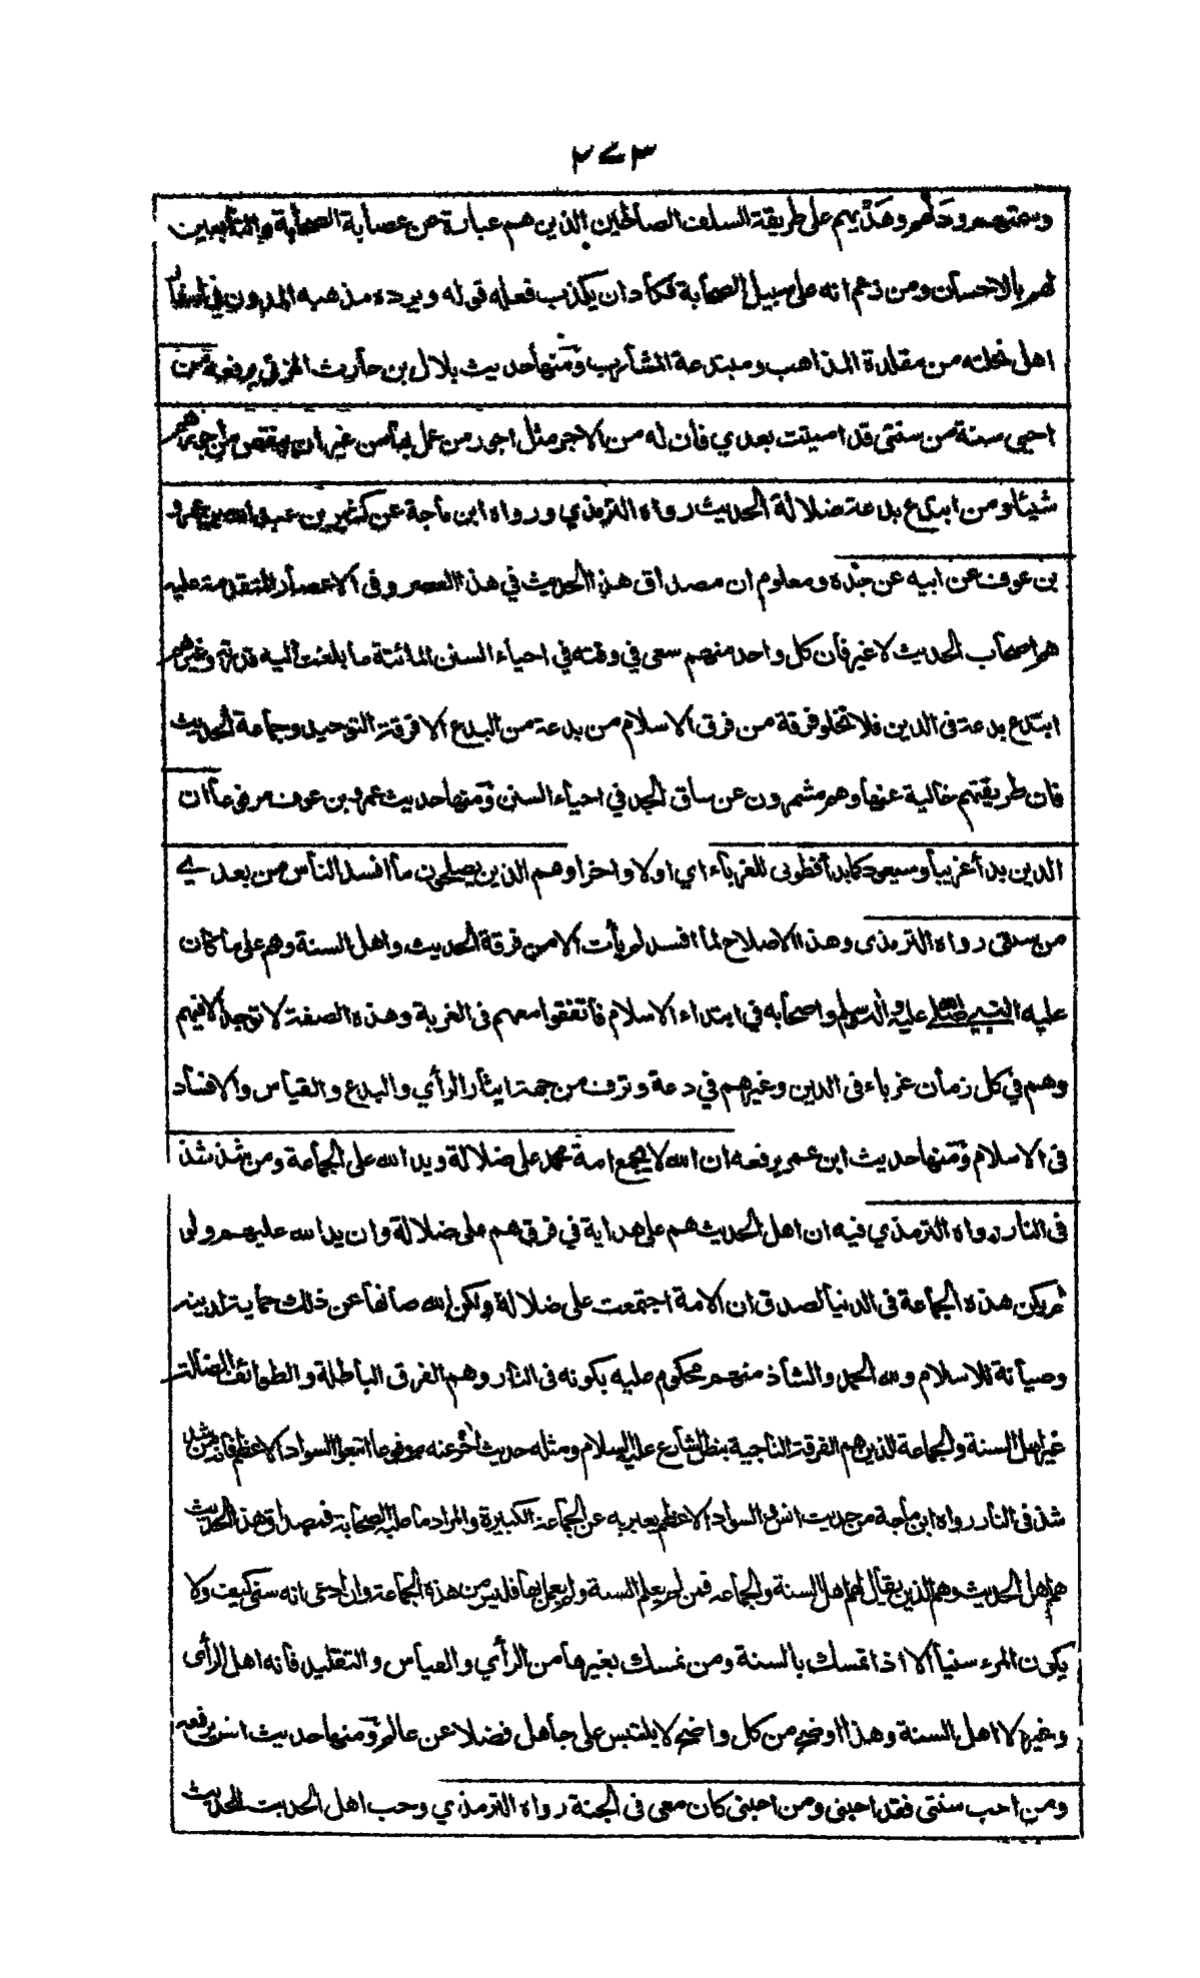 ٢٧٣
وسمتهم ودلهم وهديهم على طريقة السلف الصالحين الذين هم عبارة عن عصابة الصحابة والتابعين
لهم بالاحسان ومن زعم انه على سبيل الصحابة فكأد ان يكذب فعله قوله ويرده مذهبه المدون في اسفار
اهل نحلته من مقلدة المذاهب ومبتدعة المشارب ومنها حديث بلال بن حارث المزني يرفعه من
احيى سنة من سنتي قد اميتت بعدي فان له من الاجر مثل اجور من عمل بها من غير ان ينقص من اجورهم
شيئا ومن ابتدع بدعة ضلالة الحديث رواه الترمذي ورواه ابن ماجة عن كثير بن عبد الله بن عمرو
بن عوف عن ابيه عن جده ومعلوم ان مصداق هذا الحديث في هذا العصر وفى الاعصار المتقدمة عليه
هم اصحاب الحديث لا غير فان كل واحد منهم سعى في وقته في احياء السنن المائتة ما بلغت اليه قدرته وغيرهم
ابتدع بدعة فى الدين فلا تخلو فرقة من فرق الاسلام من بدعة من البدع الا فرقة التوحيد وجماعة الحديث
فان طريقتهم خالية عنها وهم مشمرون عن ساق الجد في احياء السنن ومنها حديث عمرو بن عوف مرفوعا ان
الدين بدأ غريبا وسيعود كما بدأ فطوبى للغرباء اي اولا واخرا وهم الذين يصلحون ما افسد الناس من بعدي
من سنتي رواه الترمذى وهذا الاصلاح لما افسد لم يأت الا من فرقة الحديث واهل السنة وهم على ما كان
عليه النبي صلى الله عليه واله وسلم واصحابه في ابتداء الاسلام فاتفقوا معهم فى الغربة وهذه الصفة لا توجد الا فيهم
وهم في كل زمان غرباء فى الدين وغيرهم في دعة وترف من جهة ايثار الرأي والبدع والقياس والافساد
فى الاسلام ومنها حديث ابن عمر يرفعه ان الله لا يجمع امة محمد على ضلالة ويد الله على الجماعة ومن شذ شذ
فى النار رواه الترمذي فيه ان اهل الحديث هم على هداية في فرق هم على ضلالة وان يد الله عليهم ولو
لم يكن هذه الجماعة فى الدنيا لصدق ان الامة اجتمعت على ضلالة ولكن الله صانها عن ذلك حماية لدينه
وصيانة للاسلام ولله الحمد والشاذ منهم محكوم عليه بكونه فى النار وهم الفرق الباطلة والطوائف الضالة
غير اهل السنة والجماعة الذين هم الفرقة الناجية بنطق الشارع عليه السلام ومثله حديث اخر عنه مرفوعا اتبعوا السواد الاعظم فانه من شذ
شذ فى النار رواه ابن ماجة من حديث انس والسواد الاعظم يعبر به عن الجماعة الكبيرة والمراد ما عليه الصحابة فمصداق هذا الحديث
هم اهل الحديث وهم الذين يقال لهم اهل السنة والجماعة فمن لم يعلم السنة ولم يعمل بها فليس من هذه الجماعة وان ادعى بانه سني كيف ولا
يكون المرء سنيا الا اذا تمسك بالسنة ومن تمسك بغيرها من الرأي والقياس والتقليد فانه اهل الرأى
وغيره لا اهل السنة وهذا اوضح من كل واضح لا يلتبس على جاهل فضلا عن عالم ومنها حديث انس يرفعه
ومن احب سنتي فقد احبني ومن احبني كان معي فى الجنة رواه الترمذي وحب اهل الحديث للحديث